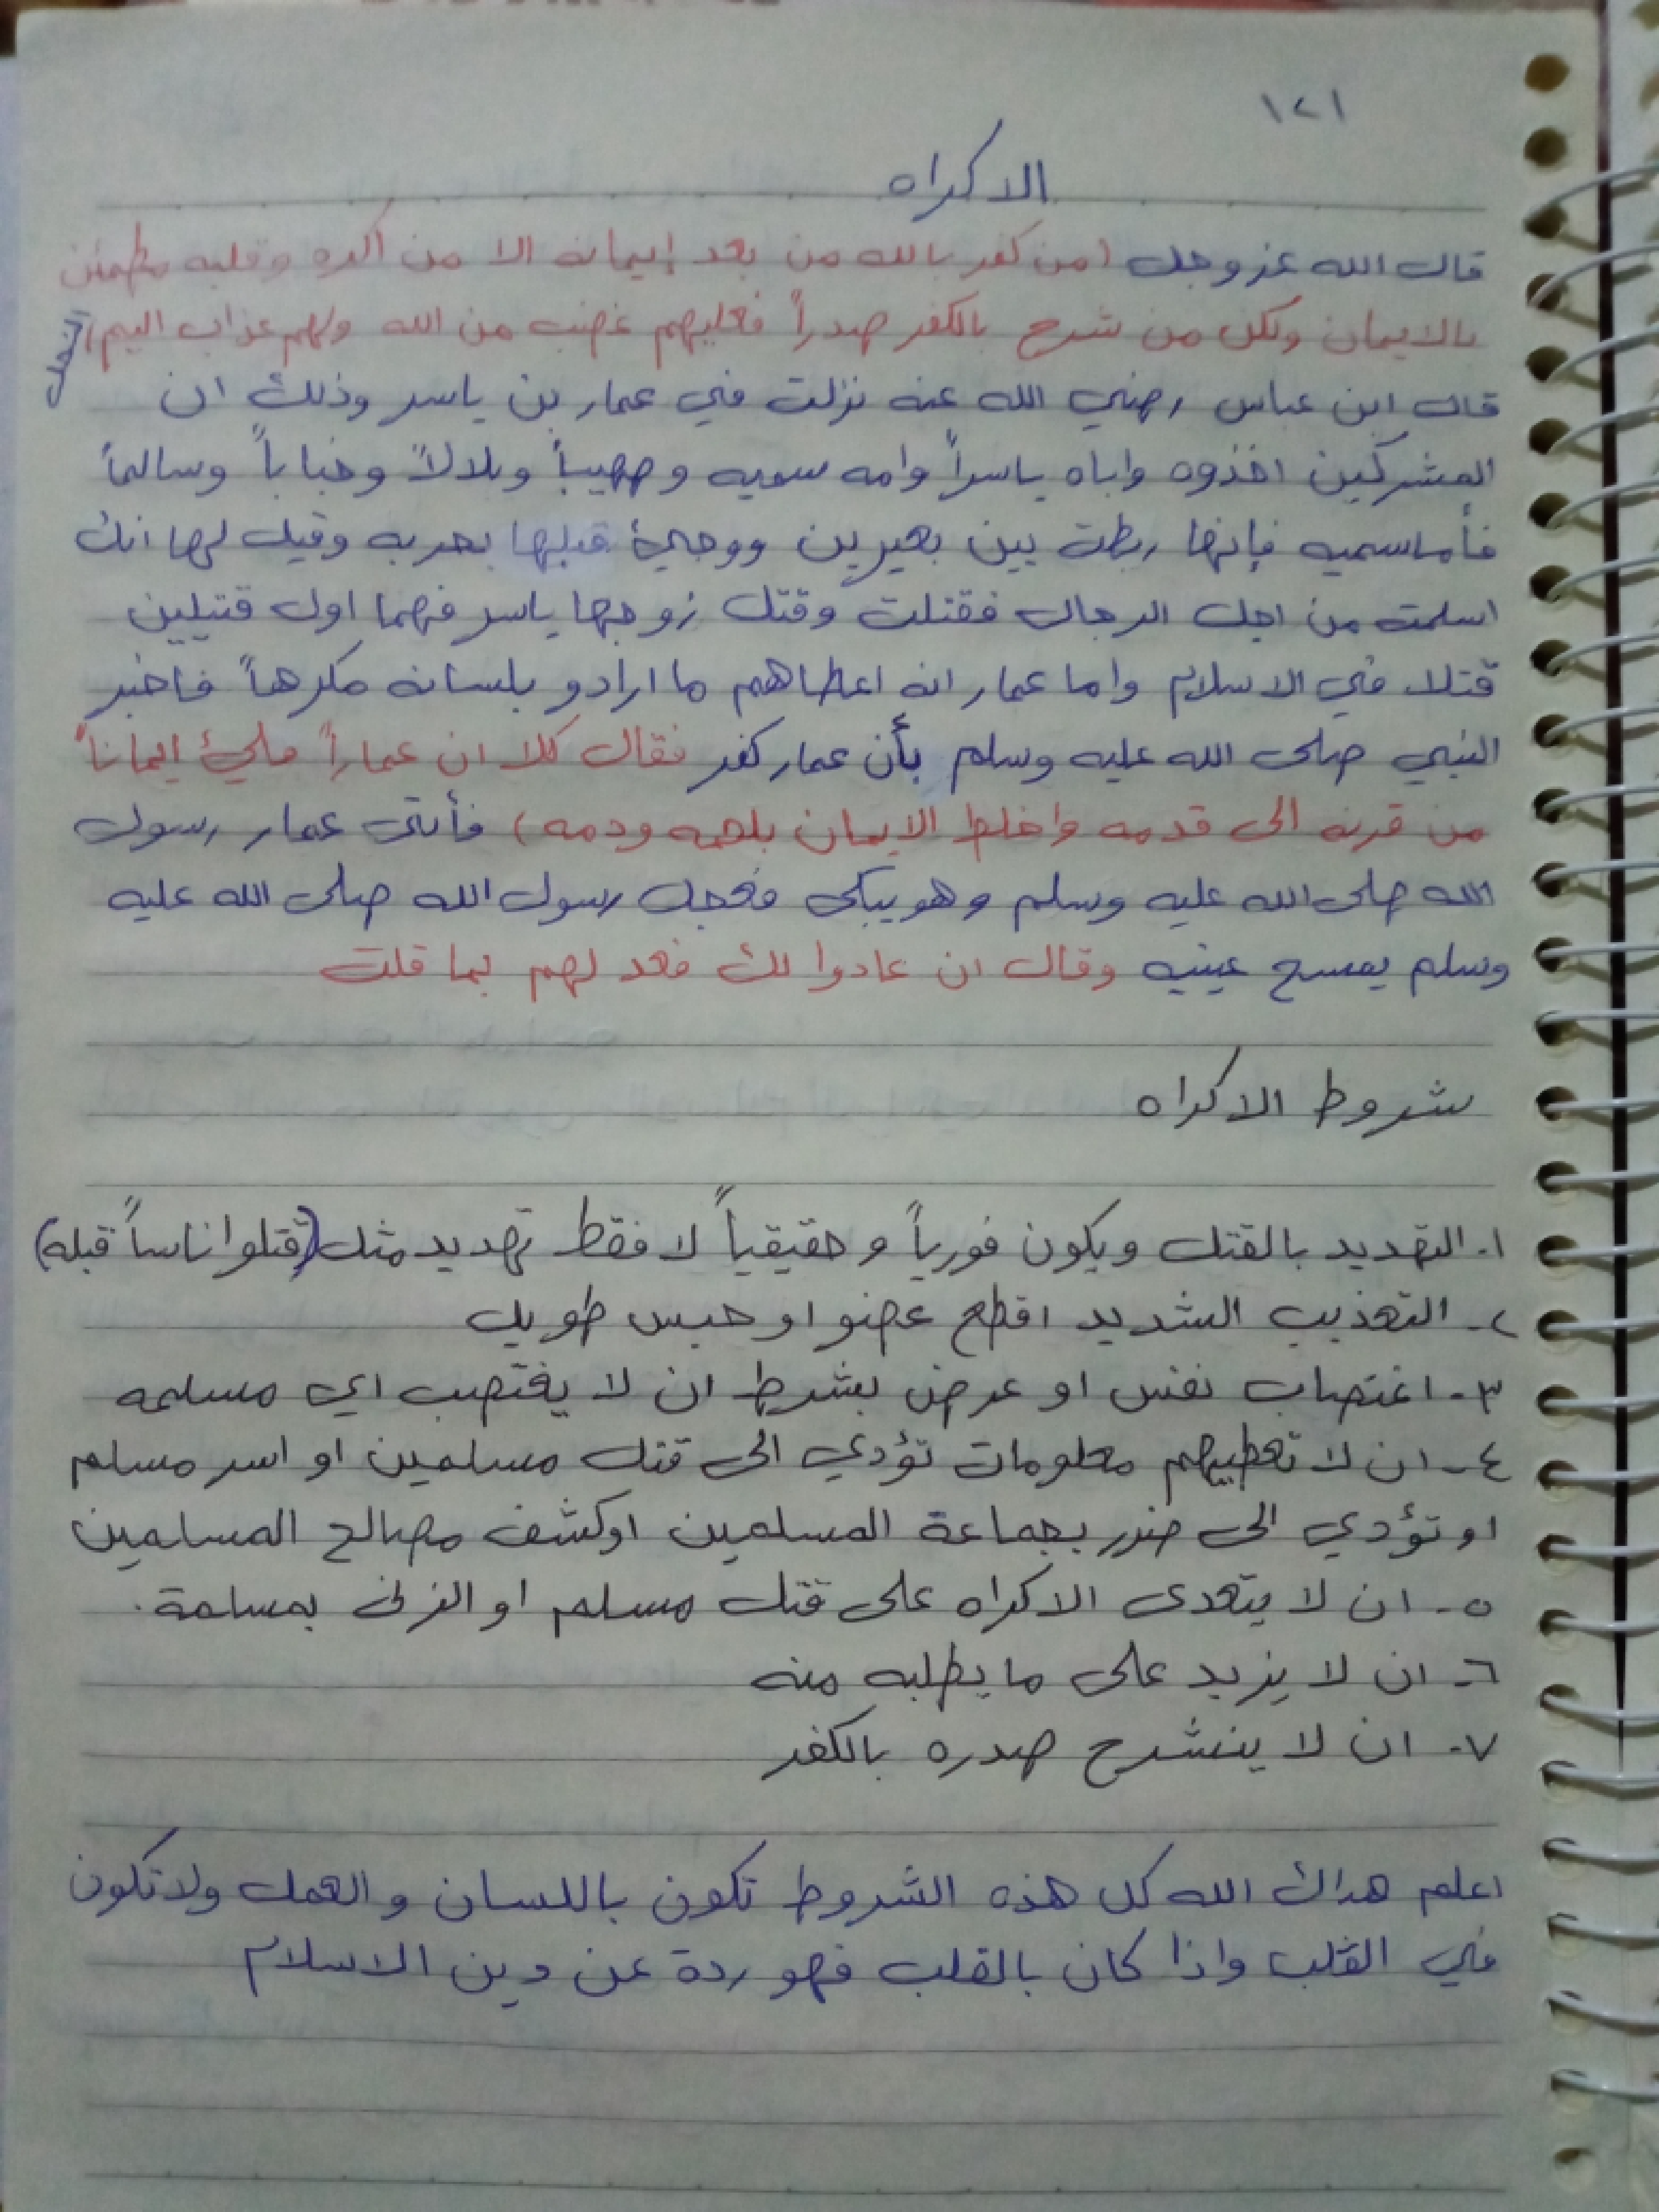 ١٢١
الاكراه
قال الله عز وجل (من كفر بالله من بعد إيمانه الا من اكره وقلبه مطمئن
بالايمان ولكن من شرح بالكفر صدراً فعليهم غضب من الله ولهم عذاب اليم) النحل
قال ابن عباس رضي الله عنه نزلت في عمار بن ياسر وذلك ان
المشركين اخذوه واباه ياسراً وامه سميه وصهيباً وبلالاً وخباباً وسالماً
فأما سميه فإنها ربطت بين بعيرين ووجئ قبلها بحربه وقيل لها انك
اسلمت من اجل الرجال فقتلت وقتل زوجها ياسر فهما اول قتيلين
قتلا في الاسلام واما عمار انه اعطاهم ما ارادو بلسانه مكرهاً فاخبر
النبي صلى الله عليه وسلم بأن عمار كفر فقال كلا ان عماراً ملئ إيماناً
من قرنه الى قدمه واخلط الايمان بلحمه ودمه) فأتى عمار رسول
الله صلى الله عليه وسلم وهو يبكى فجعل رسول الله صلى الله عليه
وسلم يمسح عينيه وقال ان عادوا لك فعد لهم بما قلت
شروط الاكراه
١- التهديد بالقتل ويكون فورياً وحقيقياً لا فقط تهديد مثل (قتلوا ناساً قبله)
٢- التعذيب الشديد اقطع عضو او حبس طويل
٣- اغتصاب نفس او عرض بشرط ان لا يغتصب اي مسلمه
٤- ان لا تعطيهم معلومات تؤدي الى قتل مسلمين او اسر مسلم
او تؤدي الى ضرر بجماعة المسلمين او كشف مصالح المسلمين
٥- ان لا يتعدى الاكراه على قتل مسلم او الزنى بمسلمة.
٦- ان لا يزيد على ما يطلبه منه
٧- ان لا ينشرح صدره بالكفر
اعلم هداك الله كل هذه الشروط تكون باللسان والعمل ولا تكون
في القلب واذا كان بالقلب فهو ردة عن دين الاسلام